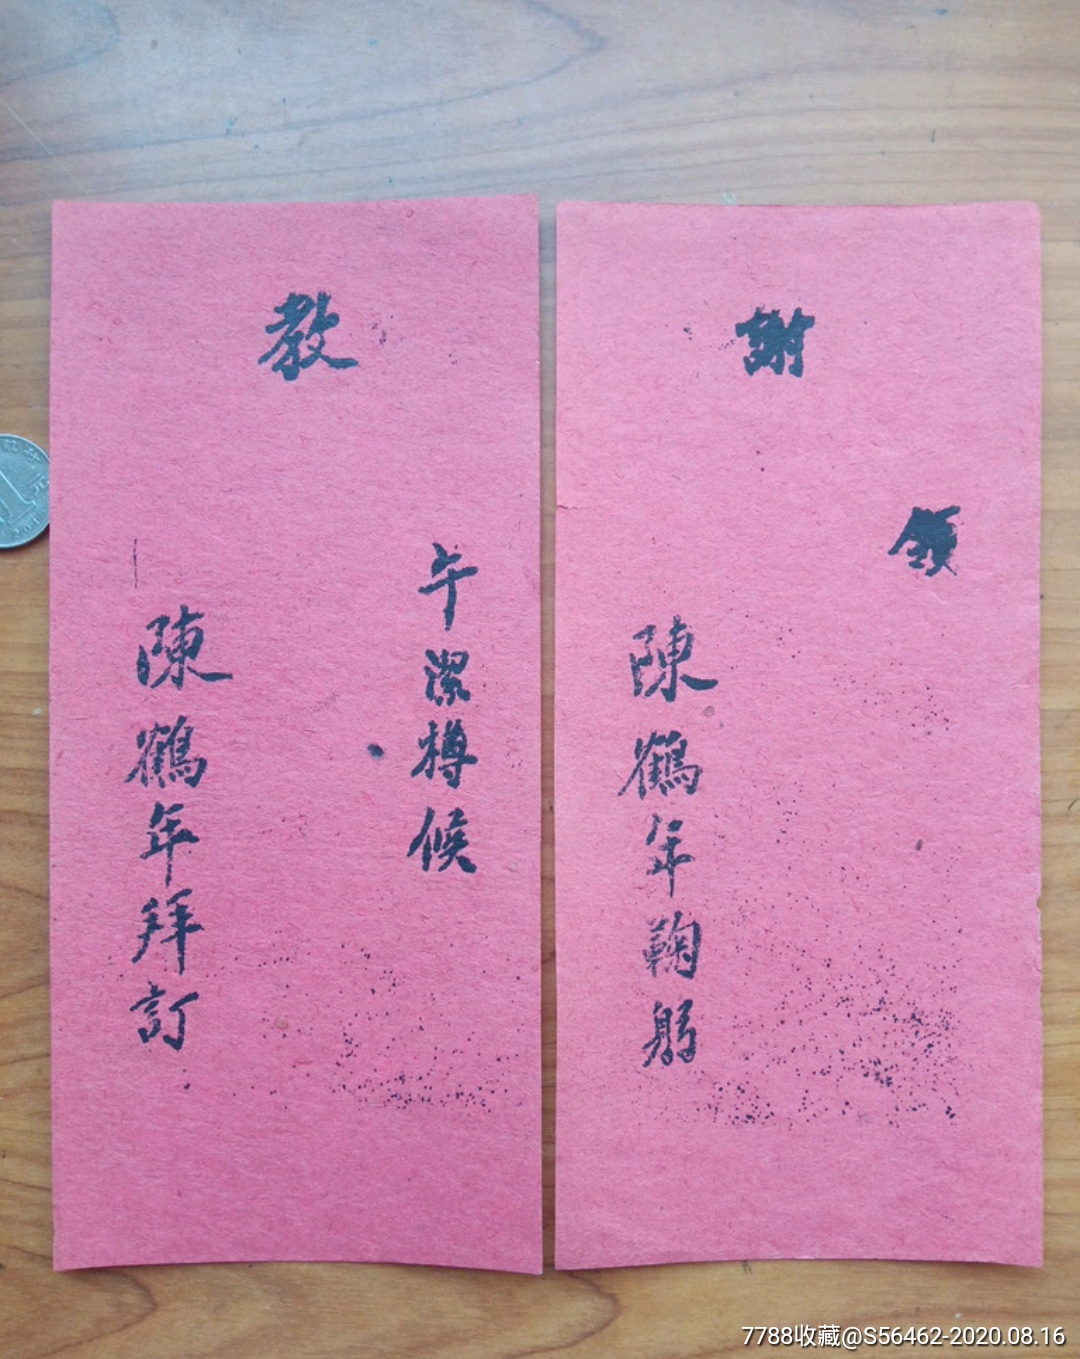 午潔樽候
教
陳鶴年拜訂
領
謝
陳鶴年鞠躬
1
7788收藏@S56462-2020.08.16